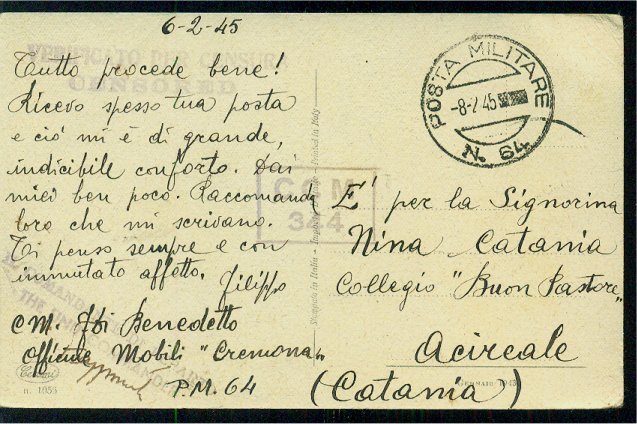 6-2-45
VERIFICATO PER CENSURA
CENSORED
Tutto procede bene!
Ricevo spesso tua posta
e ciò mi è di grande,
indicibile conforto. Dai
miei ben poco. Raccomanda
loro che mi scrivano.
Ti penso sempre e con
immutato affetto. Filippo
C.M. Benedetto
Officine Mobili "Cremona"
P.M. 64
n. 1955
Stampato in Italia - Printed in Italy
COM
344
POSTA MILITARE
-8-2 45
N. 64
E' per la Signorina
Nina Catania
Collegio "Buon Pastore"
Acireale
(Catania)